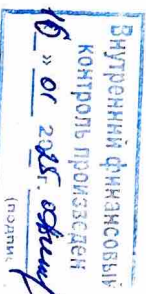 Внутренний финансовый
контроль произведен
16 » 01 2025 г.
(подпись